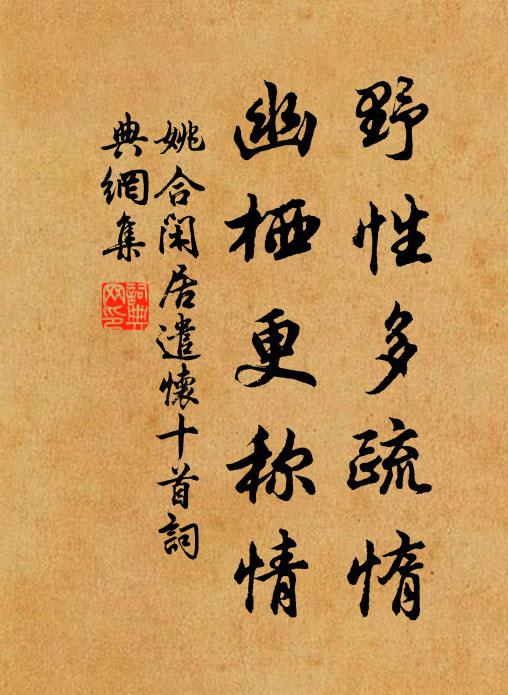 野性多疏惰
幽栖更称情
姚合閑居遣懷十首詞
典網集
詞典
网印